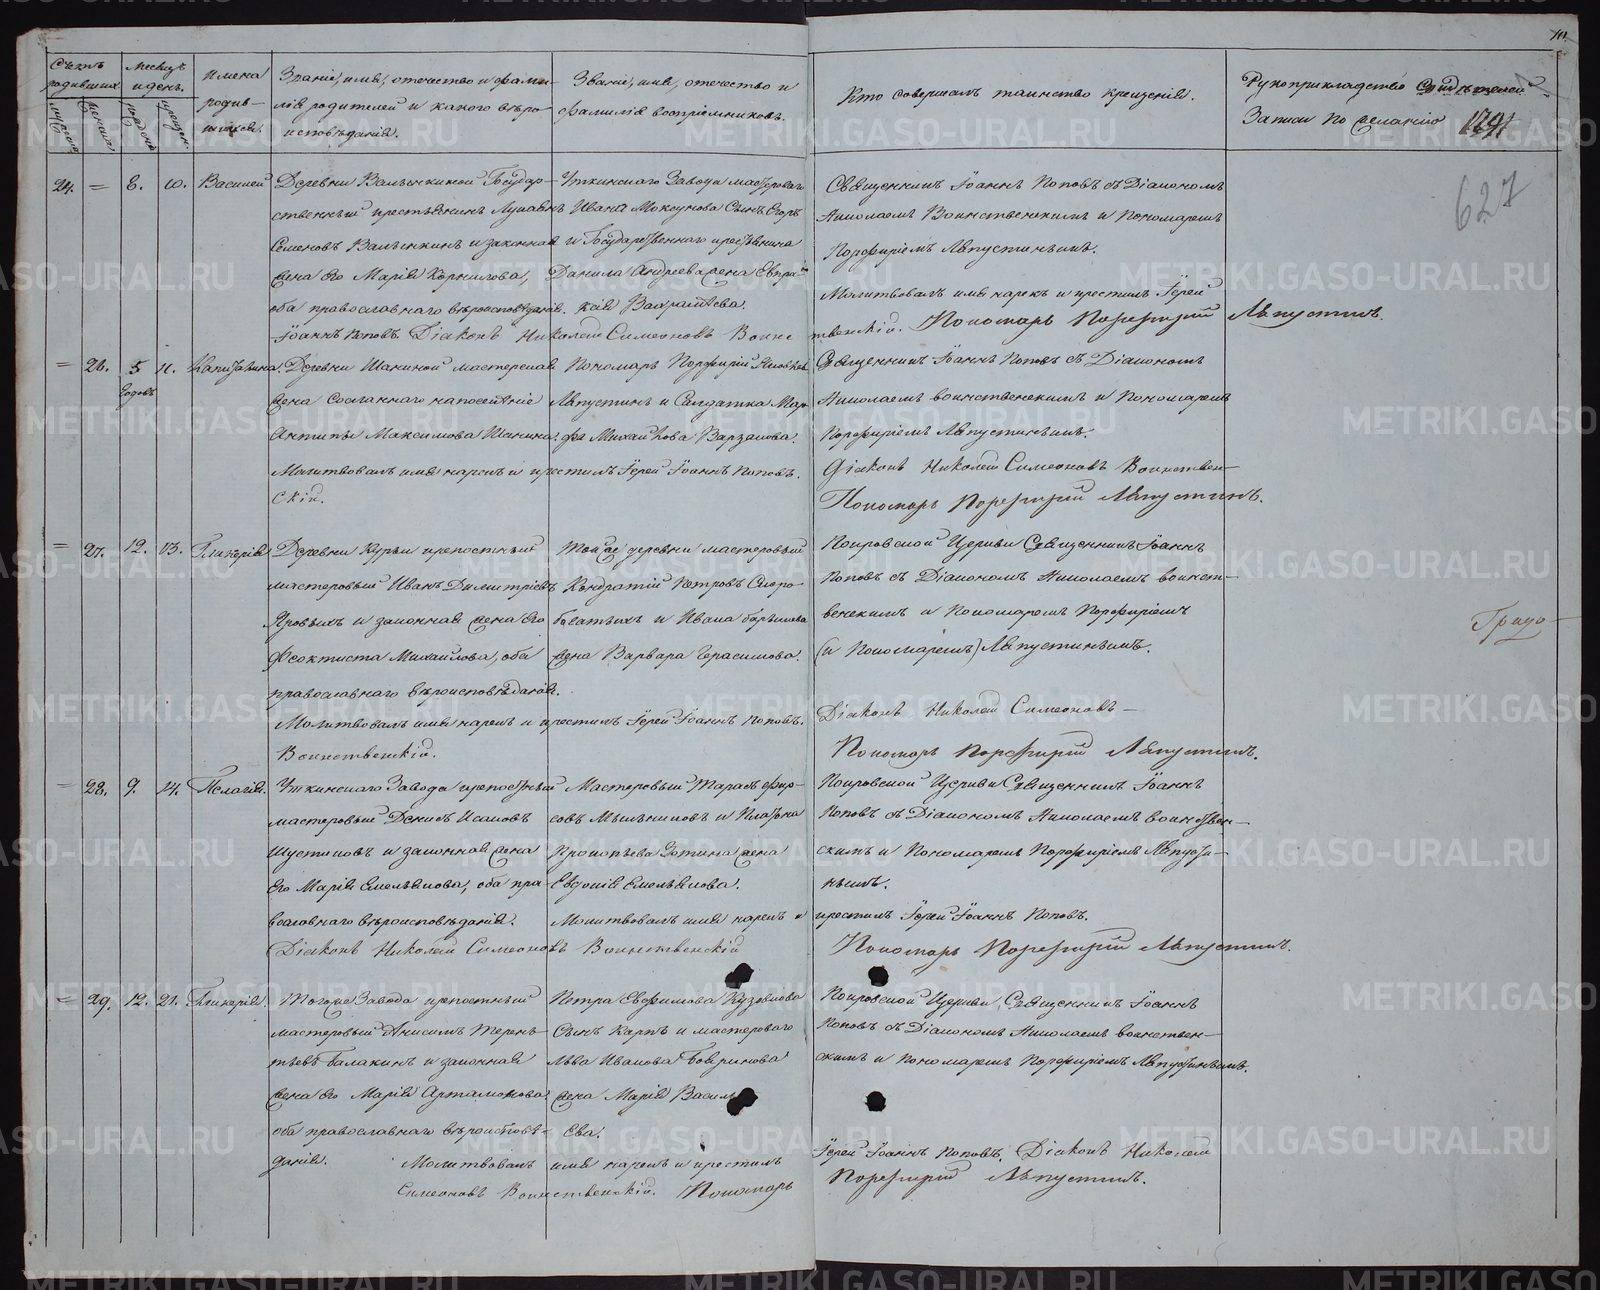 Счетъ родившихся
Месяцъ и день.
Имена родив-
шихся.
Званіе, имя, отечество и фами-
лія родителей и какого веро-
исповѣданія.
Званіе, имя, отечество и
фамилія воспріемниковъ.
Кто совершалъ таинство крещенія.
Рукоприкладство свидѣтелей
записи по желанію
627
24. = 8. 10. Василей
Государ-
ственный крестьянинъ
Семеновъ и законная
жена его Марія Корнилова,
оба православнаго вѣроисповѣданія.
Уткинскаго Завода мастероваго
Ивана Сынъ Егоръ
и Государственнаго крестьянина
Данила Андреева жена Евпра-
ксія
Священникъ Іоаннъ Поповъ съ Діакономъ
Николаемъ Воинственскимъ и Пономаремъ
Порфиріемъ Ляпустинымъ.
Молитвовалъ имя нарекъ и крестилъ Іерей
Іоаннъ Поповъ. Діаконъ Николай Симеоновъ Воинс
твенскій. Пономарь Порфирий Ляпустинъ.
= 26. 5 11. Капитолина.
Деревни Шакиной мастерская
жена сосланнаго на поселѣніе
Антипы Максимова Шакина.
Пономарь Порфирій
Ляпустинъ и Салдатка Мар-
фа Михайлова Варзанова.
Священникъ Іоаннъ Поповъ съ Діакономъ
Николаемъ воинственскимъ и Пономаремъ
Порфиріемъ Ляпустинымъ.
Молитвовалъ имя нарекъ и крестилъ Іерей Іоаннъ Поповъ.
Діаконъ Николай Симеоновъ Воинствен-
скій.
Пономарь Порфирий Ляпустинъ.
= 27. 12. 13. Гликерія
Деревни Курьи крепостный
мастеровый Иванъ Димитріевъ
и законная жена его
Феоктиста Михайлова, оба
православнаго вѣроисповѣданія.
Той же деревни мастеровый
Кондратій Петровъ Скоро-
богатыхъ и Ивана
жена Варвара Герасимова.
Покровской Церкви Священникъ Іоаннъ
Поповъ съ Діакономъ Николаемъ воинст-
венскимъ и Пономаремъ Порфиріемъ
(и Пономаремъ) Ляпустинымъ.
Молитвовалъ имя нарекъ и крестилъ Іерей Іоаннъ Поповъ.
Діаконъ Николай Симеоновъ
Воинственскій.
Пономарь Порфирий Ляпустинъ.
= 28. 9. 14. Пелагія.
Уткинскаго Завода крепостный
мастеровый Денисъ Исаковъ
Шустиковъ и законная жена
его Марія Емельянова, оба пра-
вославнаго вѣроисповѣданія.
Мастеровый Тарасъ Фир-
совъ Мыльниковъ и Платона
Прокопьева Зотина жена
Евдокія Емельянова.
Покровской Церкви Священникъ Іоаннъ
Поповъ съ Діакономъ Николаемъ воинствен-
скимъ и Пономаремъ Порфиріемъ Ляпусти-
нымъ.
Молитвовалъ имя нарекъ и крестилъ Іерей Іоаннъ Поповъ.
Діаконъ Николай Симеоновъ Воинственскій
Пономарь Порфирий Ляпустинъ.
= 29. 12. 21. Гликерія.
Тогоже Завода крепостный
мастеровый Анисимъ Терен-
тьевъ Балакинъ и законная
жена его Марія Артамонова
оба православнаго вѣроисповѣ-
данія.
Петра Евфимова Кузовкова
Сынъ Карпъ и мастероваго
Льва Иванова
жена Марія Василь-
ева.
Покровской Церкви Священникъ Іоаннъ
Поповъ съ Діакономъ Николаемъ воинствен-
скимъ и Пономаремъ Порфиріемъ Ляпустинымъ.
Молитвовалъ имя нарекъ и крестилъ Іерей Іоаннъ Поповъ. Діаконъ Николай
Симеоновъ Воинственскій. Пономарь Порфирий Ляпустинъ.
METRIKI.GASO-URAL.RU